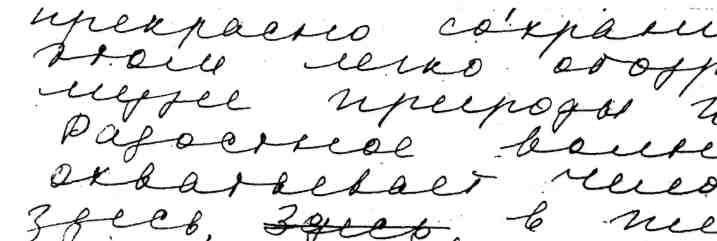 прекрасно сохрани
этом легко
музее природы
Радостное волне
охватывает чело
Здесь, ~~здесь~~, в